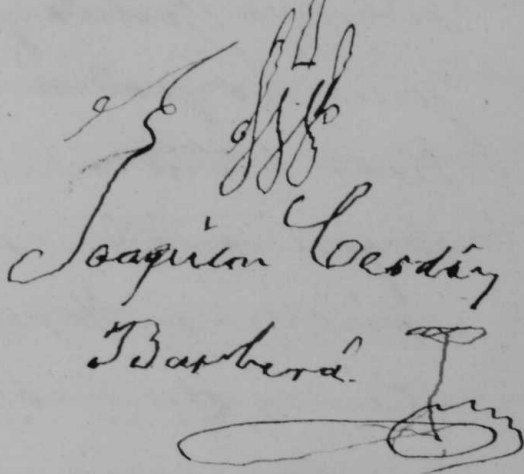 Joaquin Cerdán
Barberá.